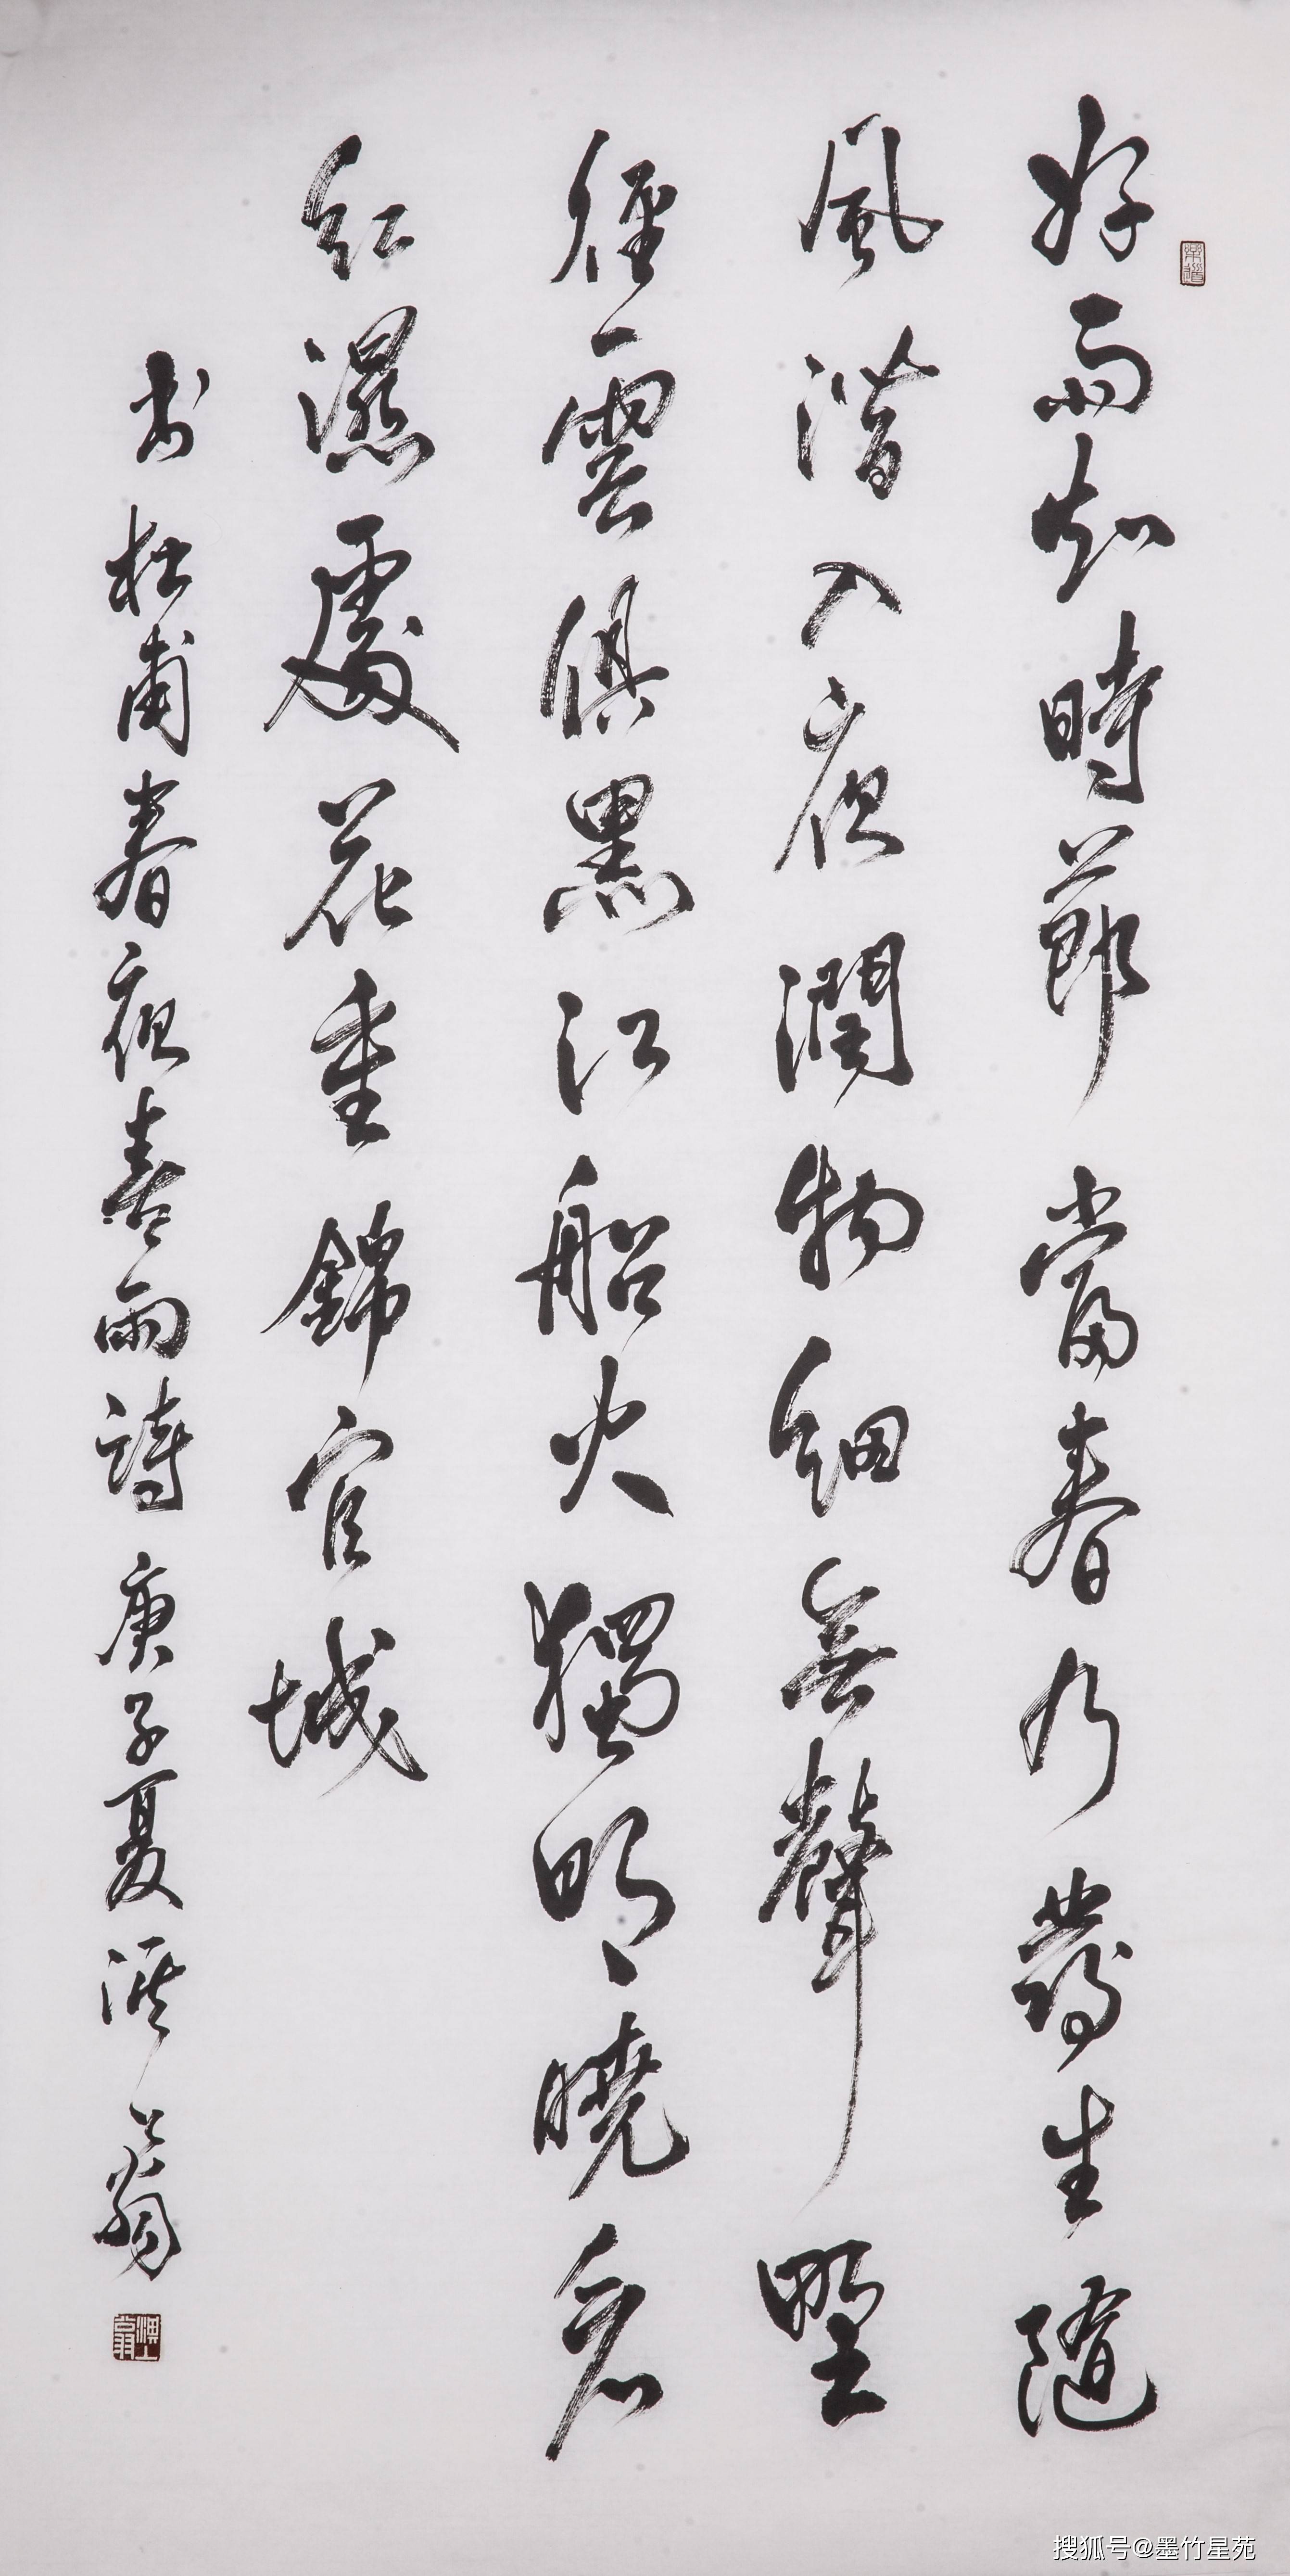 好雨知時節當春乃發生隨
風潛入夜潤物細無聲野
徑雲俱黑江船火獨明曉看
紅濕處花重錦官城
書杜甫春夜喜雨詩庚子夏上翁
搜狐号@墨竹星苑